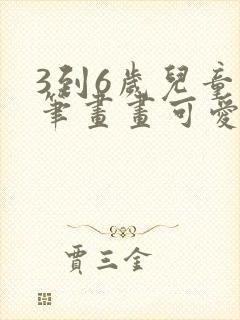 3到6歲兒童
筆畫畫可愛
賈三金